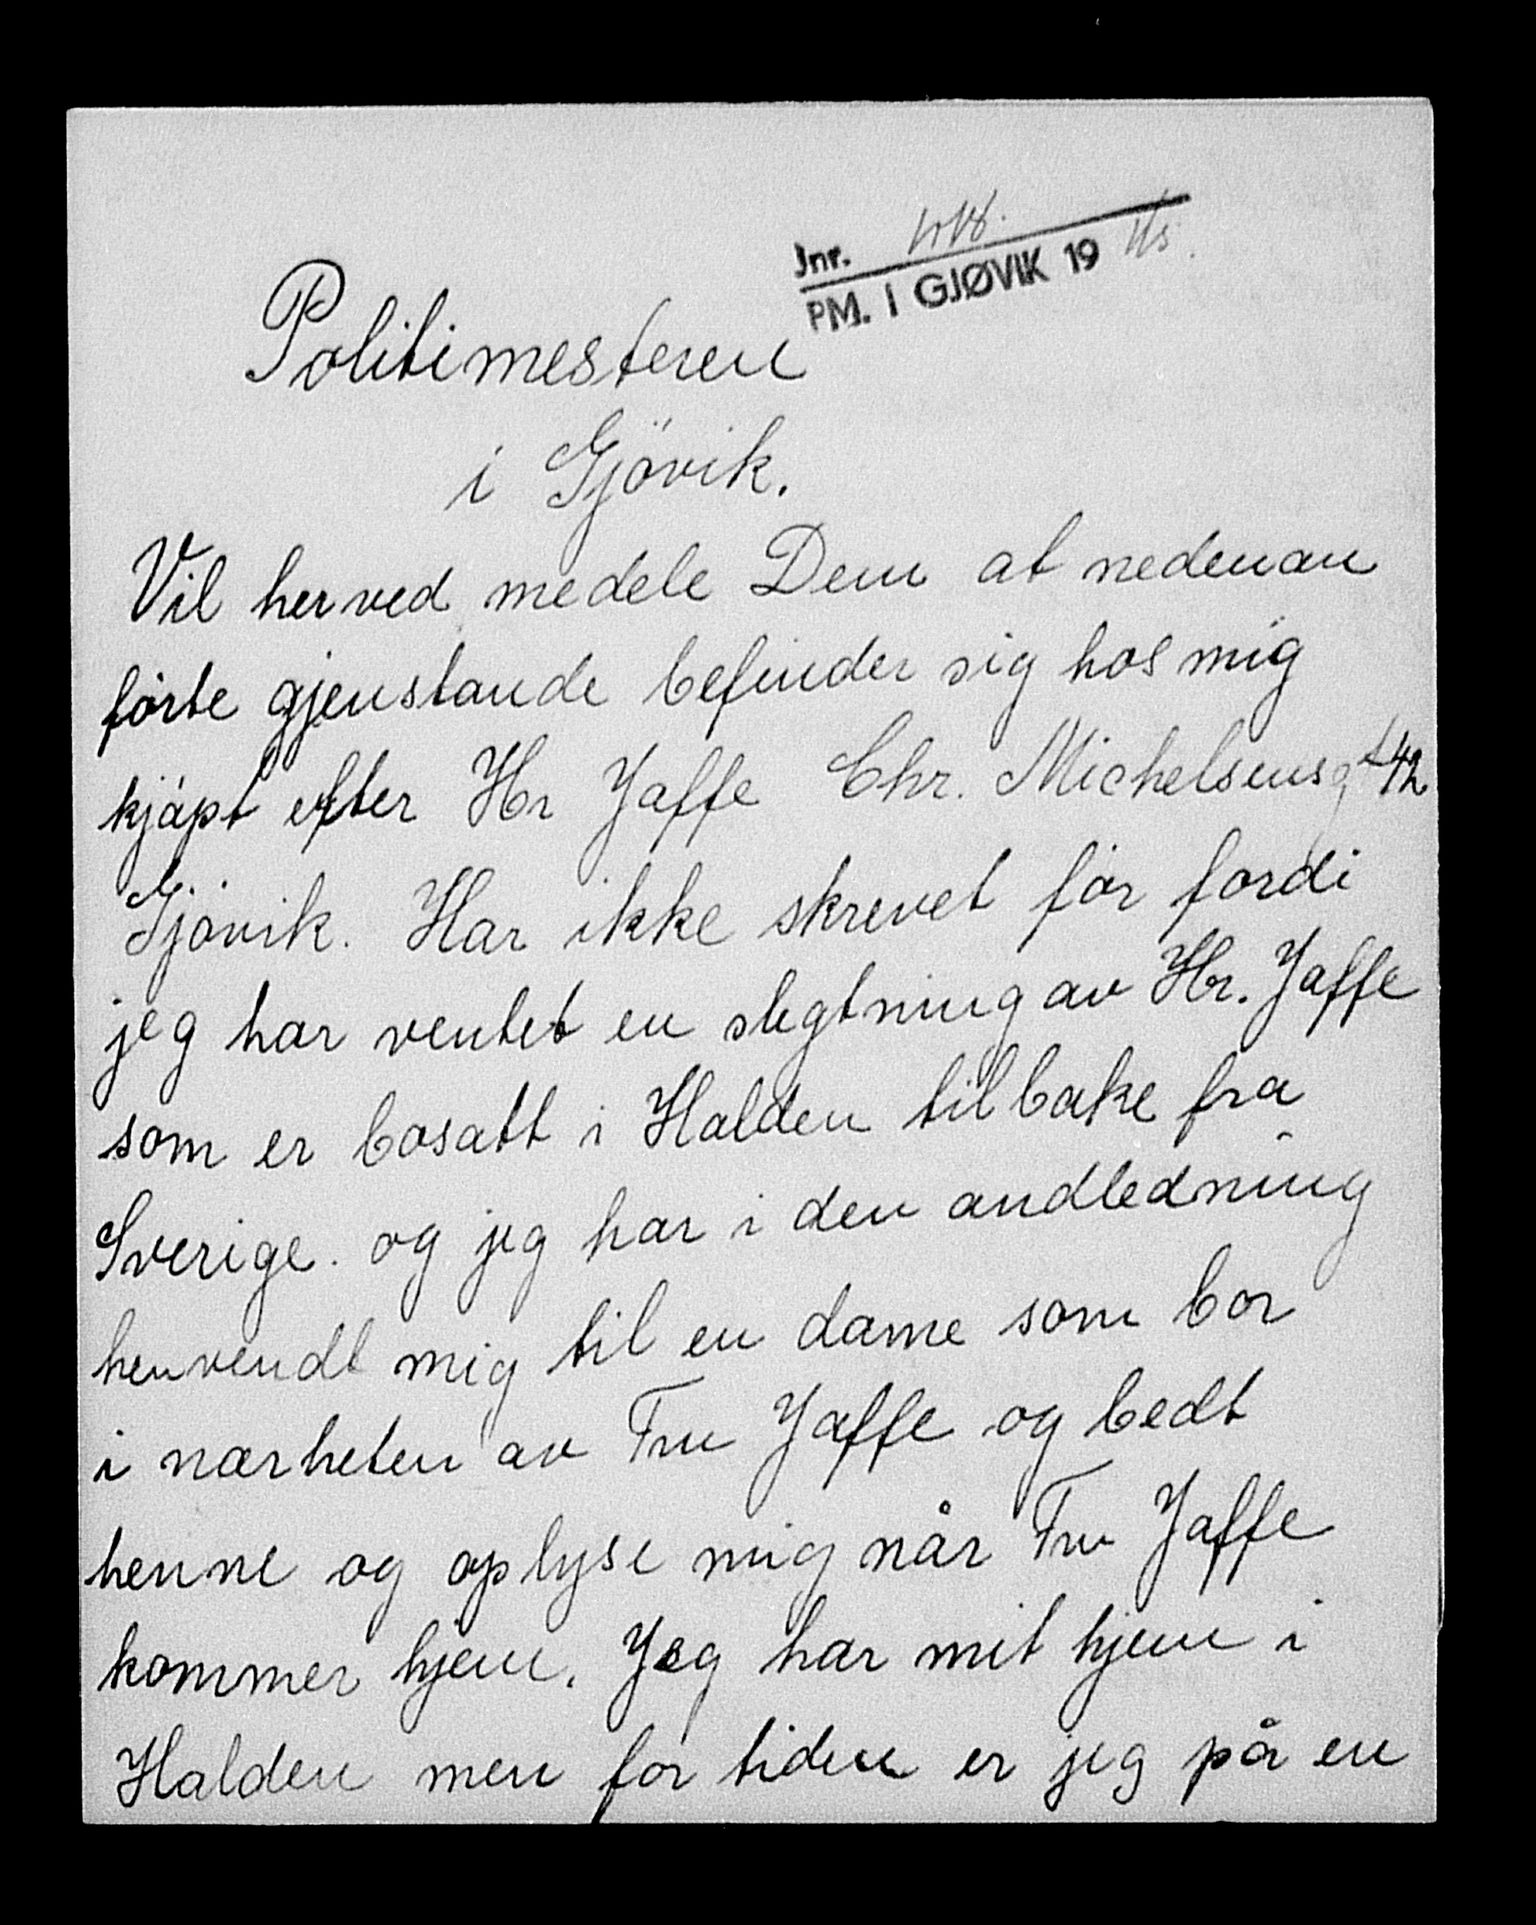 Jnr.
PM. I GJØVIK 19
Politimesteren
i Gjövik.
Vil herved medele Dem at nedenan
förte gjenstande befinder sig hos mig
kjöpt efter Hr Jaffe Chr. Michelsensgt 42
Gjövik. Har ikke skrevet för fordi
jeg har ventet en slegtning av Hr. Jaffe
som er bosatt i Halden tilbake fra
Sverige. og jeg har i den andledning
henvendt mig til en dame som bor
i nærheten av Fru Jaffe og bedt
henne og oplyse mig når Fru Jaffe
kommer hjem. Jeg har mit hjem i
Halden men for tiden er jeg på en